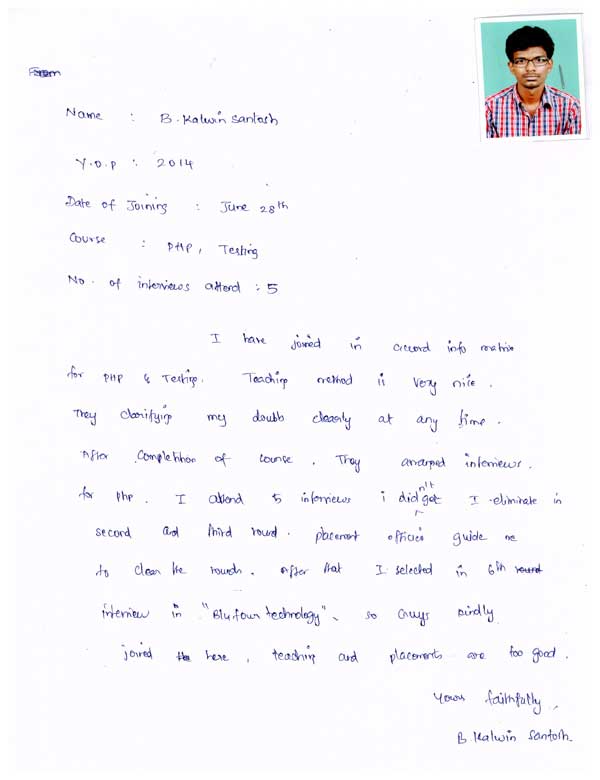 Name : B. Kalwin Santosh
Y.O.P : 2014
Date of Joining : June 28th
Course : PHP, Testing
No. of interviews attend : 5
I have joined in Accord info matrix
for PHP & Testing. Teaching method is very nice.
They clarifying my doubts clearly at any time.
After Completion of course. They arranged interviews.
for php. I attend 5 interviews i didn't get I eliminate in
second and third round. placement officies guide me
to clear the rounds. After that I selected in 6th
interview in "Blufour technology". so Guys kindly
joined here, teaching and placements are too good.
Yours faithfully,
B. Kalwin Santosh.